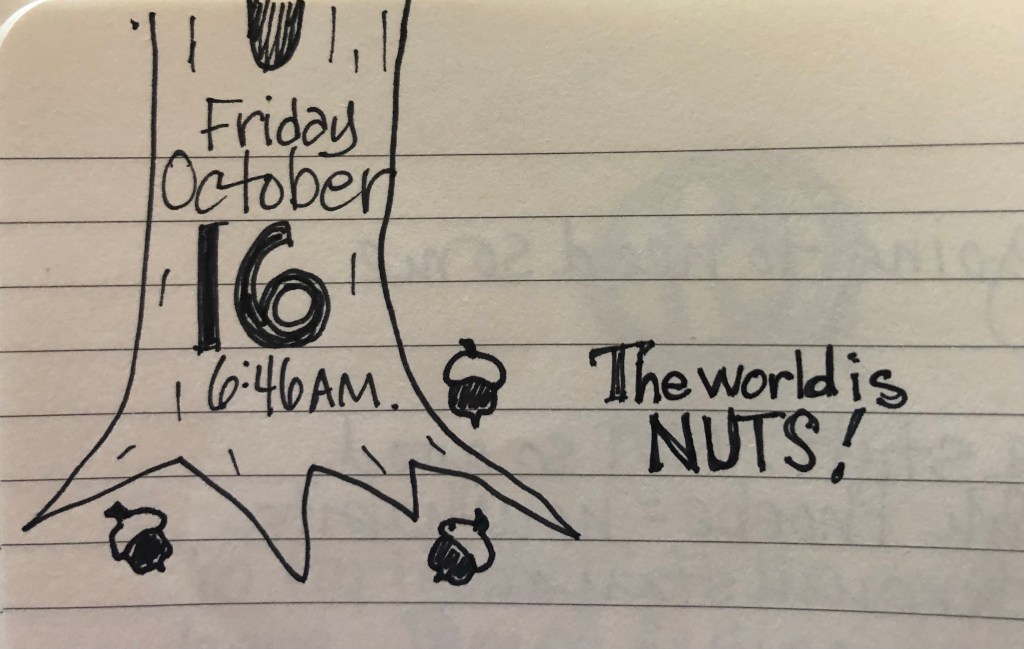 Friday
October
16
6:46 AM.
The world is
NUTS!